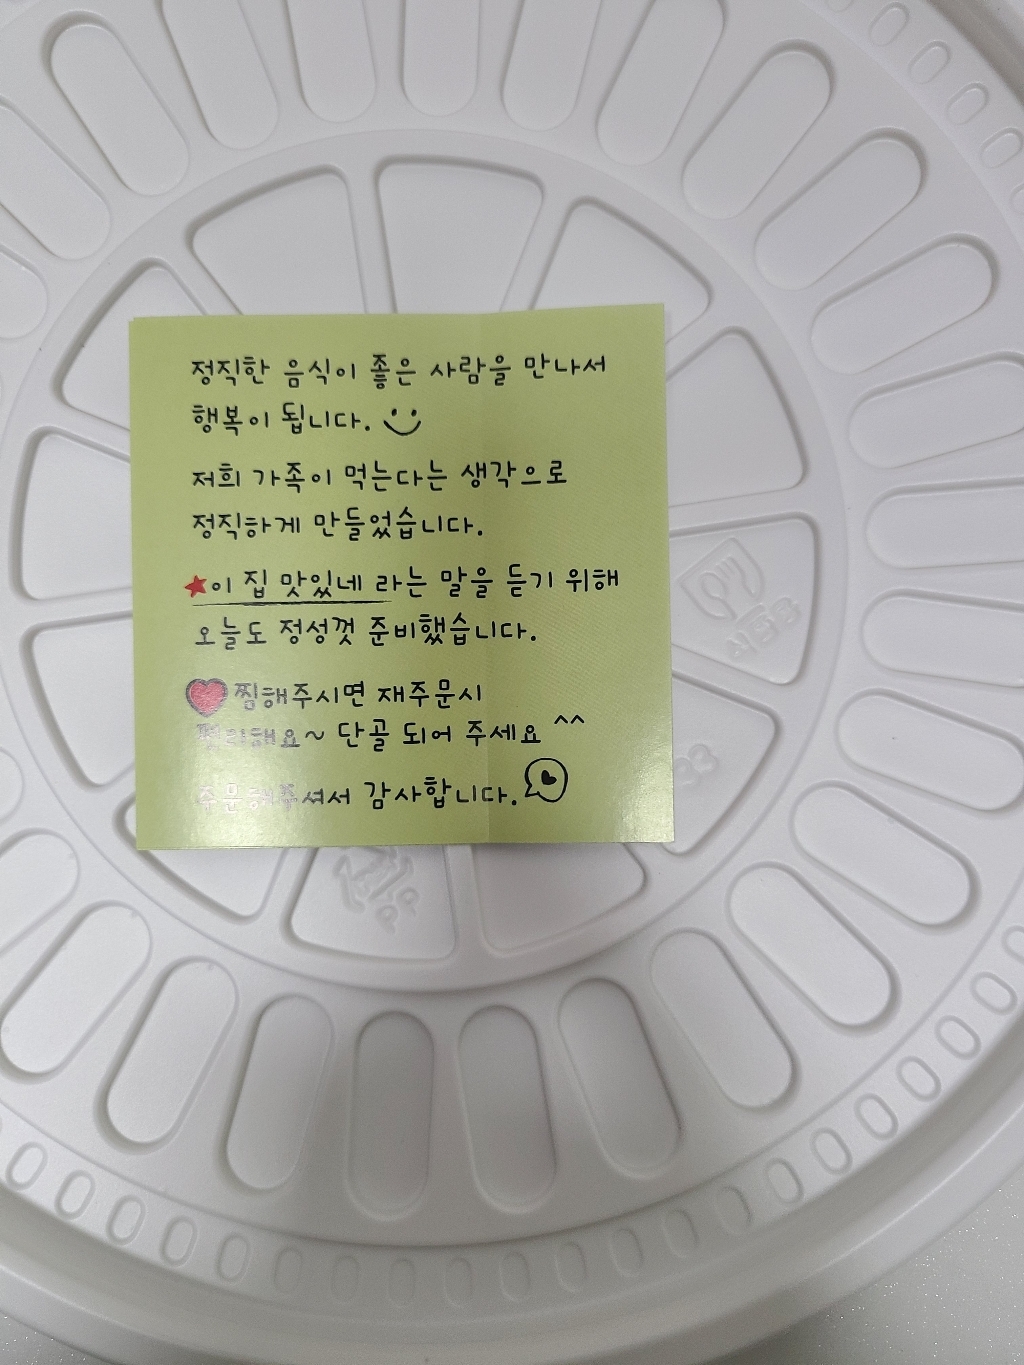 정직한 음식이 좋은 사람을 만나서
행복이 됩니다.
저희 가족이 먹는다는 생각으로
정직하게 만들었습니다.
★이 집 맛있네 라는 말을 듣기 위해
오늘도 정성껏 준비했습니다.
찜해주시면 재주문시
편리해요~ 단골 되어 주세요 ^^
주문해주셔서 감사합니다.
식품용